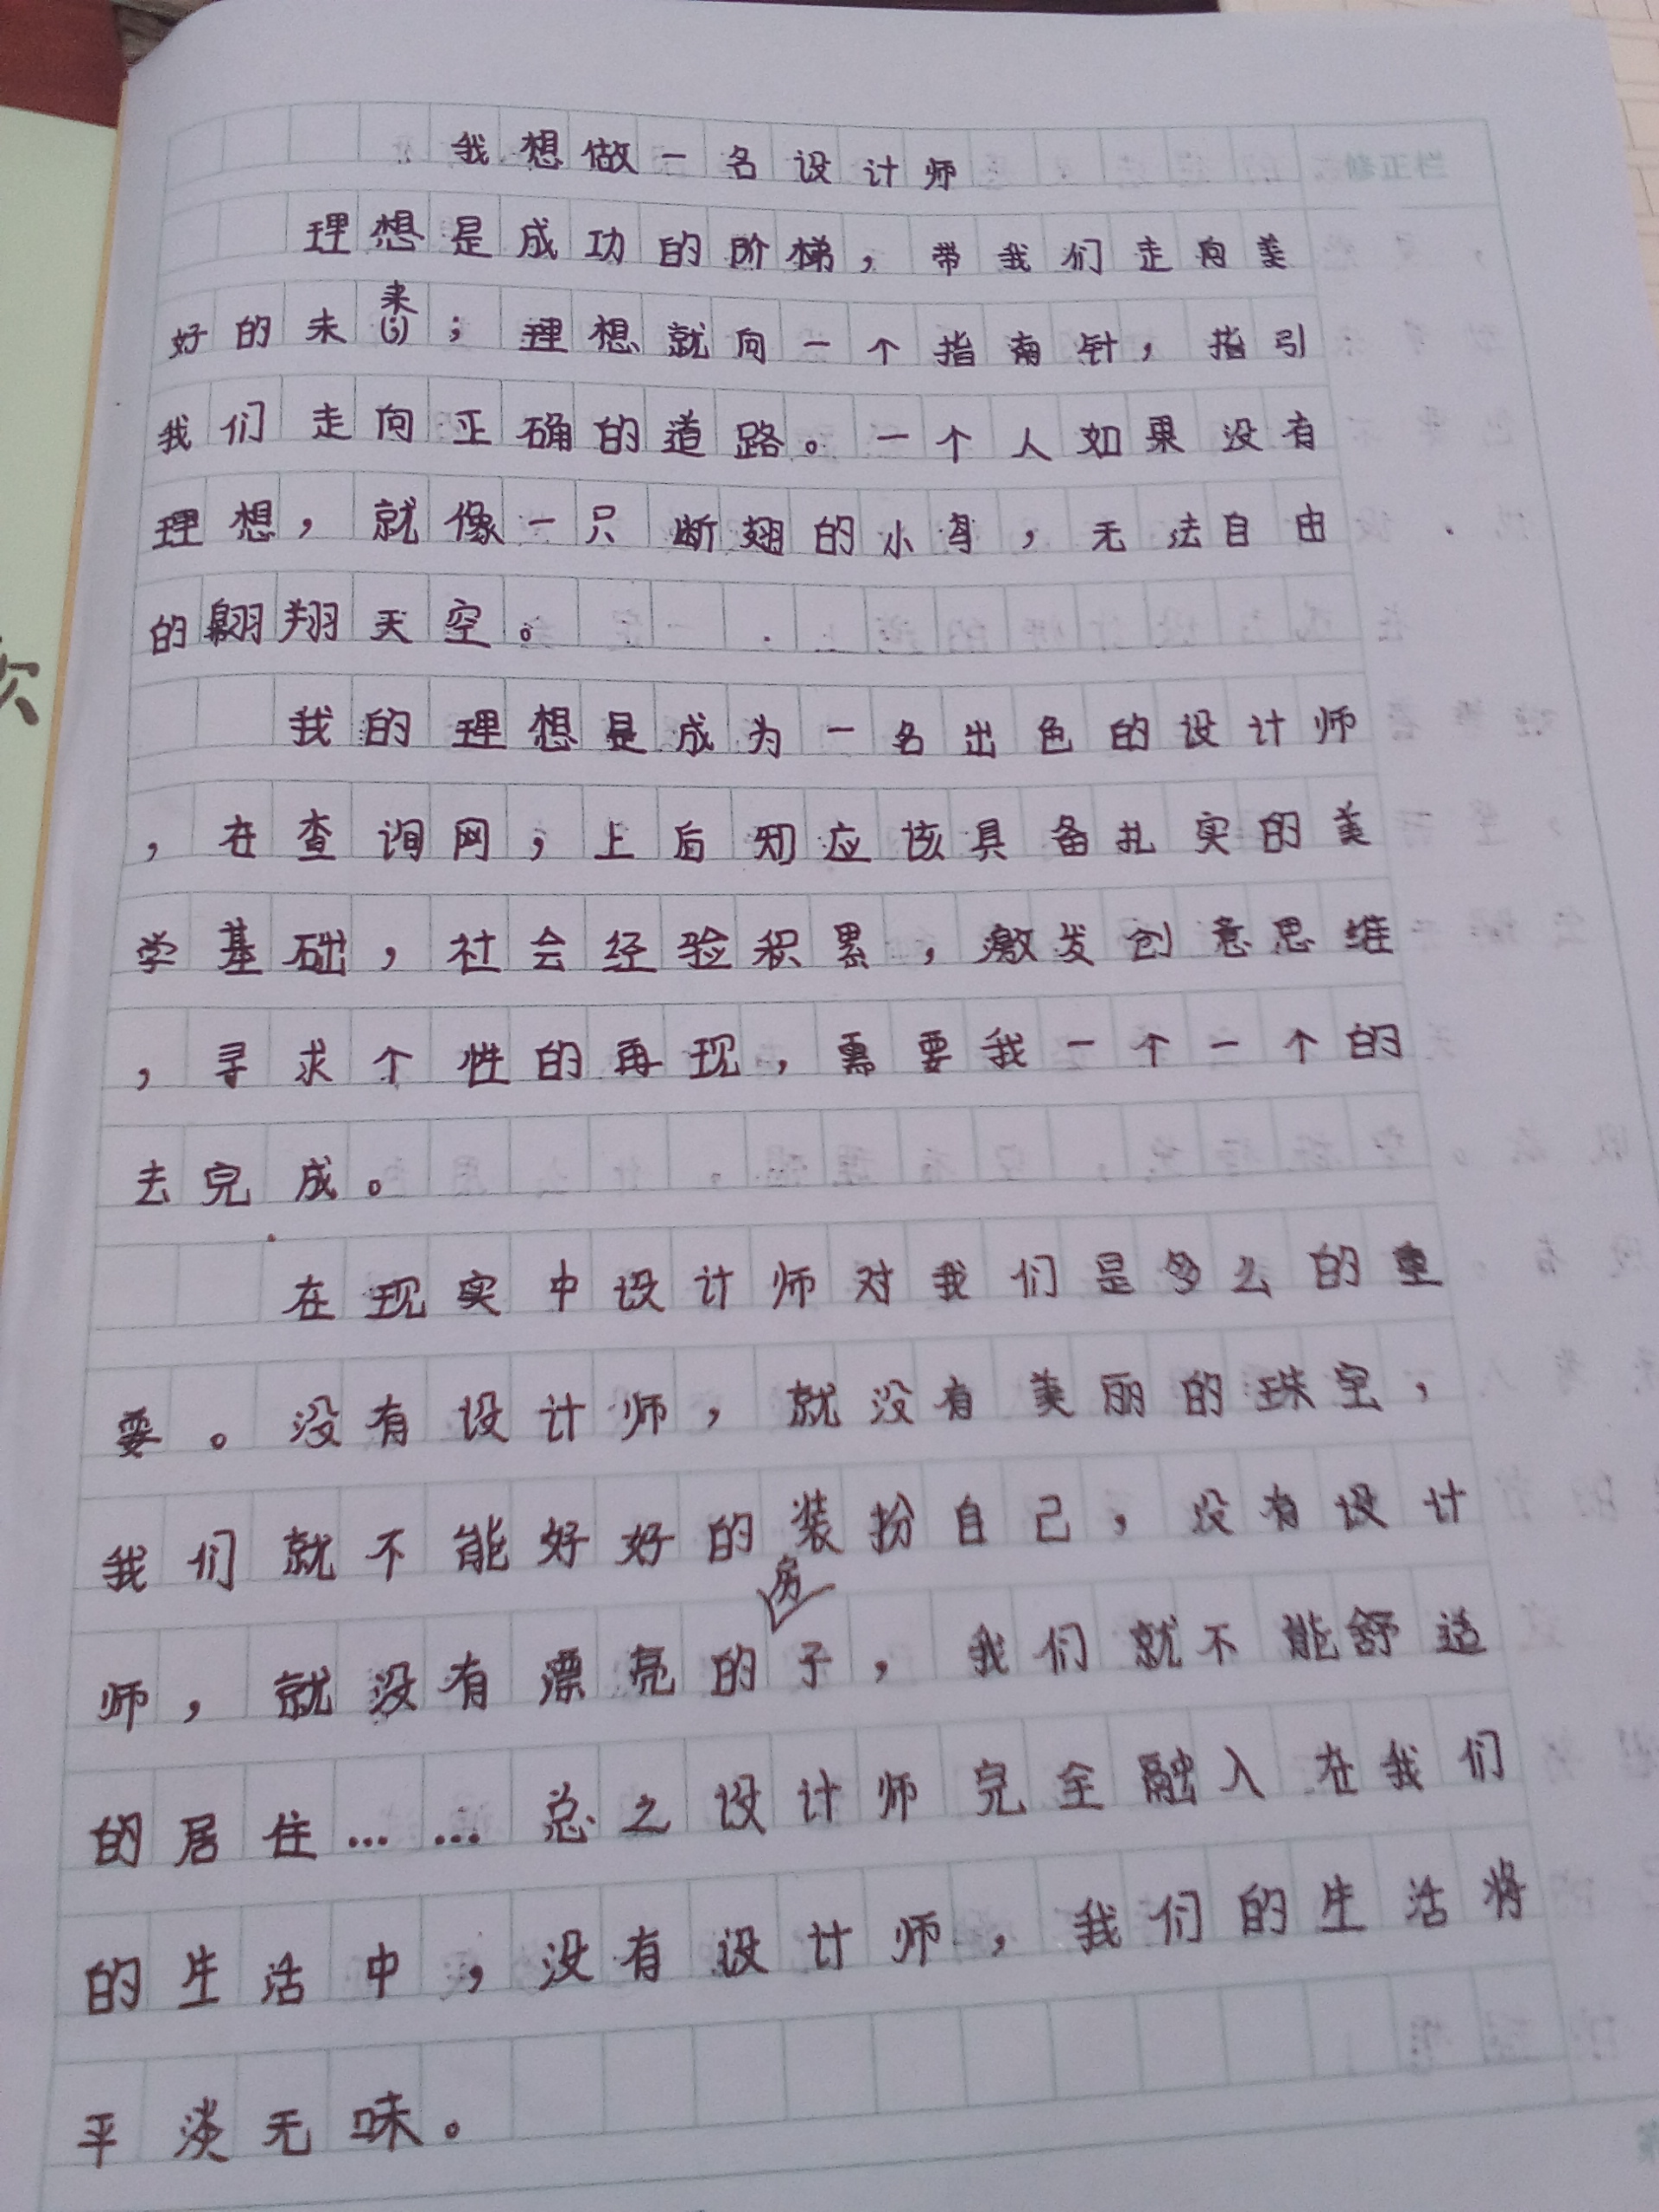 我想做一名设计师
修正栏
理想是成功的阶梯，带我们走向美
好的未来；理想就向一个指南针，指引
我们走向正确的道路。一个人如果没有
理想，就像一只断翅的小鸟，无法自由
的翱翔天空。
我的理想是成为一名出色的设计师
，在查询网，上后知应该具备扎实的美
学基础，社会经验积累，激发创意思维
，寻求个性的再现，需要我一个一个的
去完成。
在现实中设计师对我们是多么的重
要。没有设计师，就没有美丽的珠宝，
我们就不能好好的装扮自己，没有设计
师，就没有漂亮的房子，我们就不能舒适
的居住……总之设计师完全融入在我们
的生活中，没有设计师，我们的生活将
平淡无味。